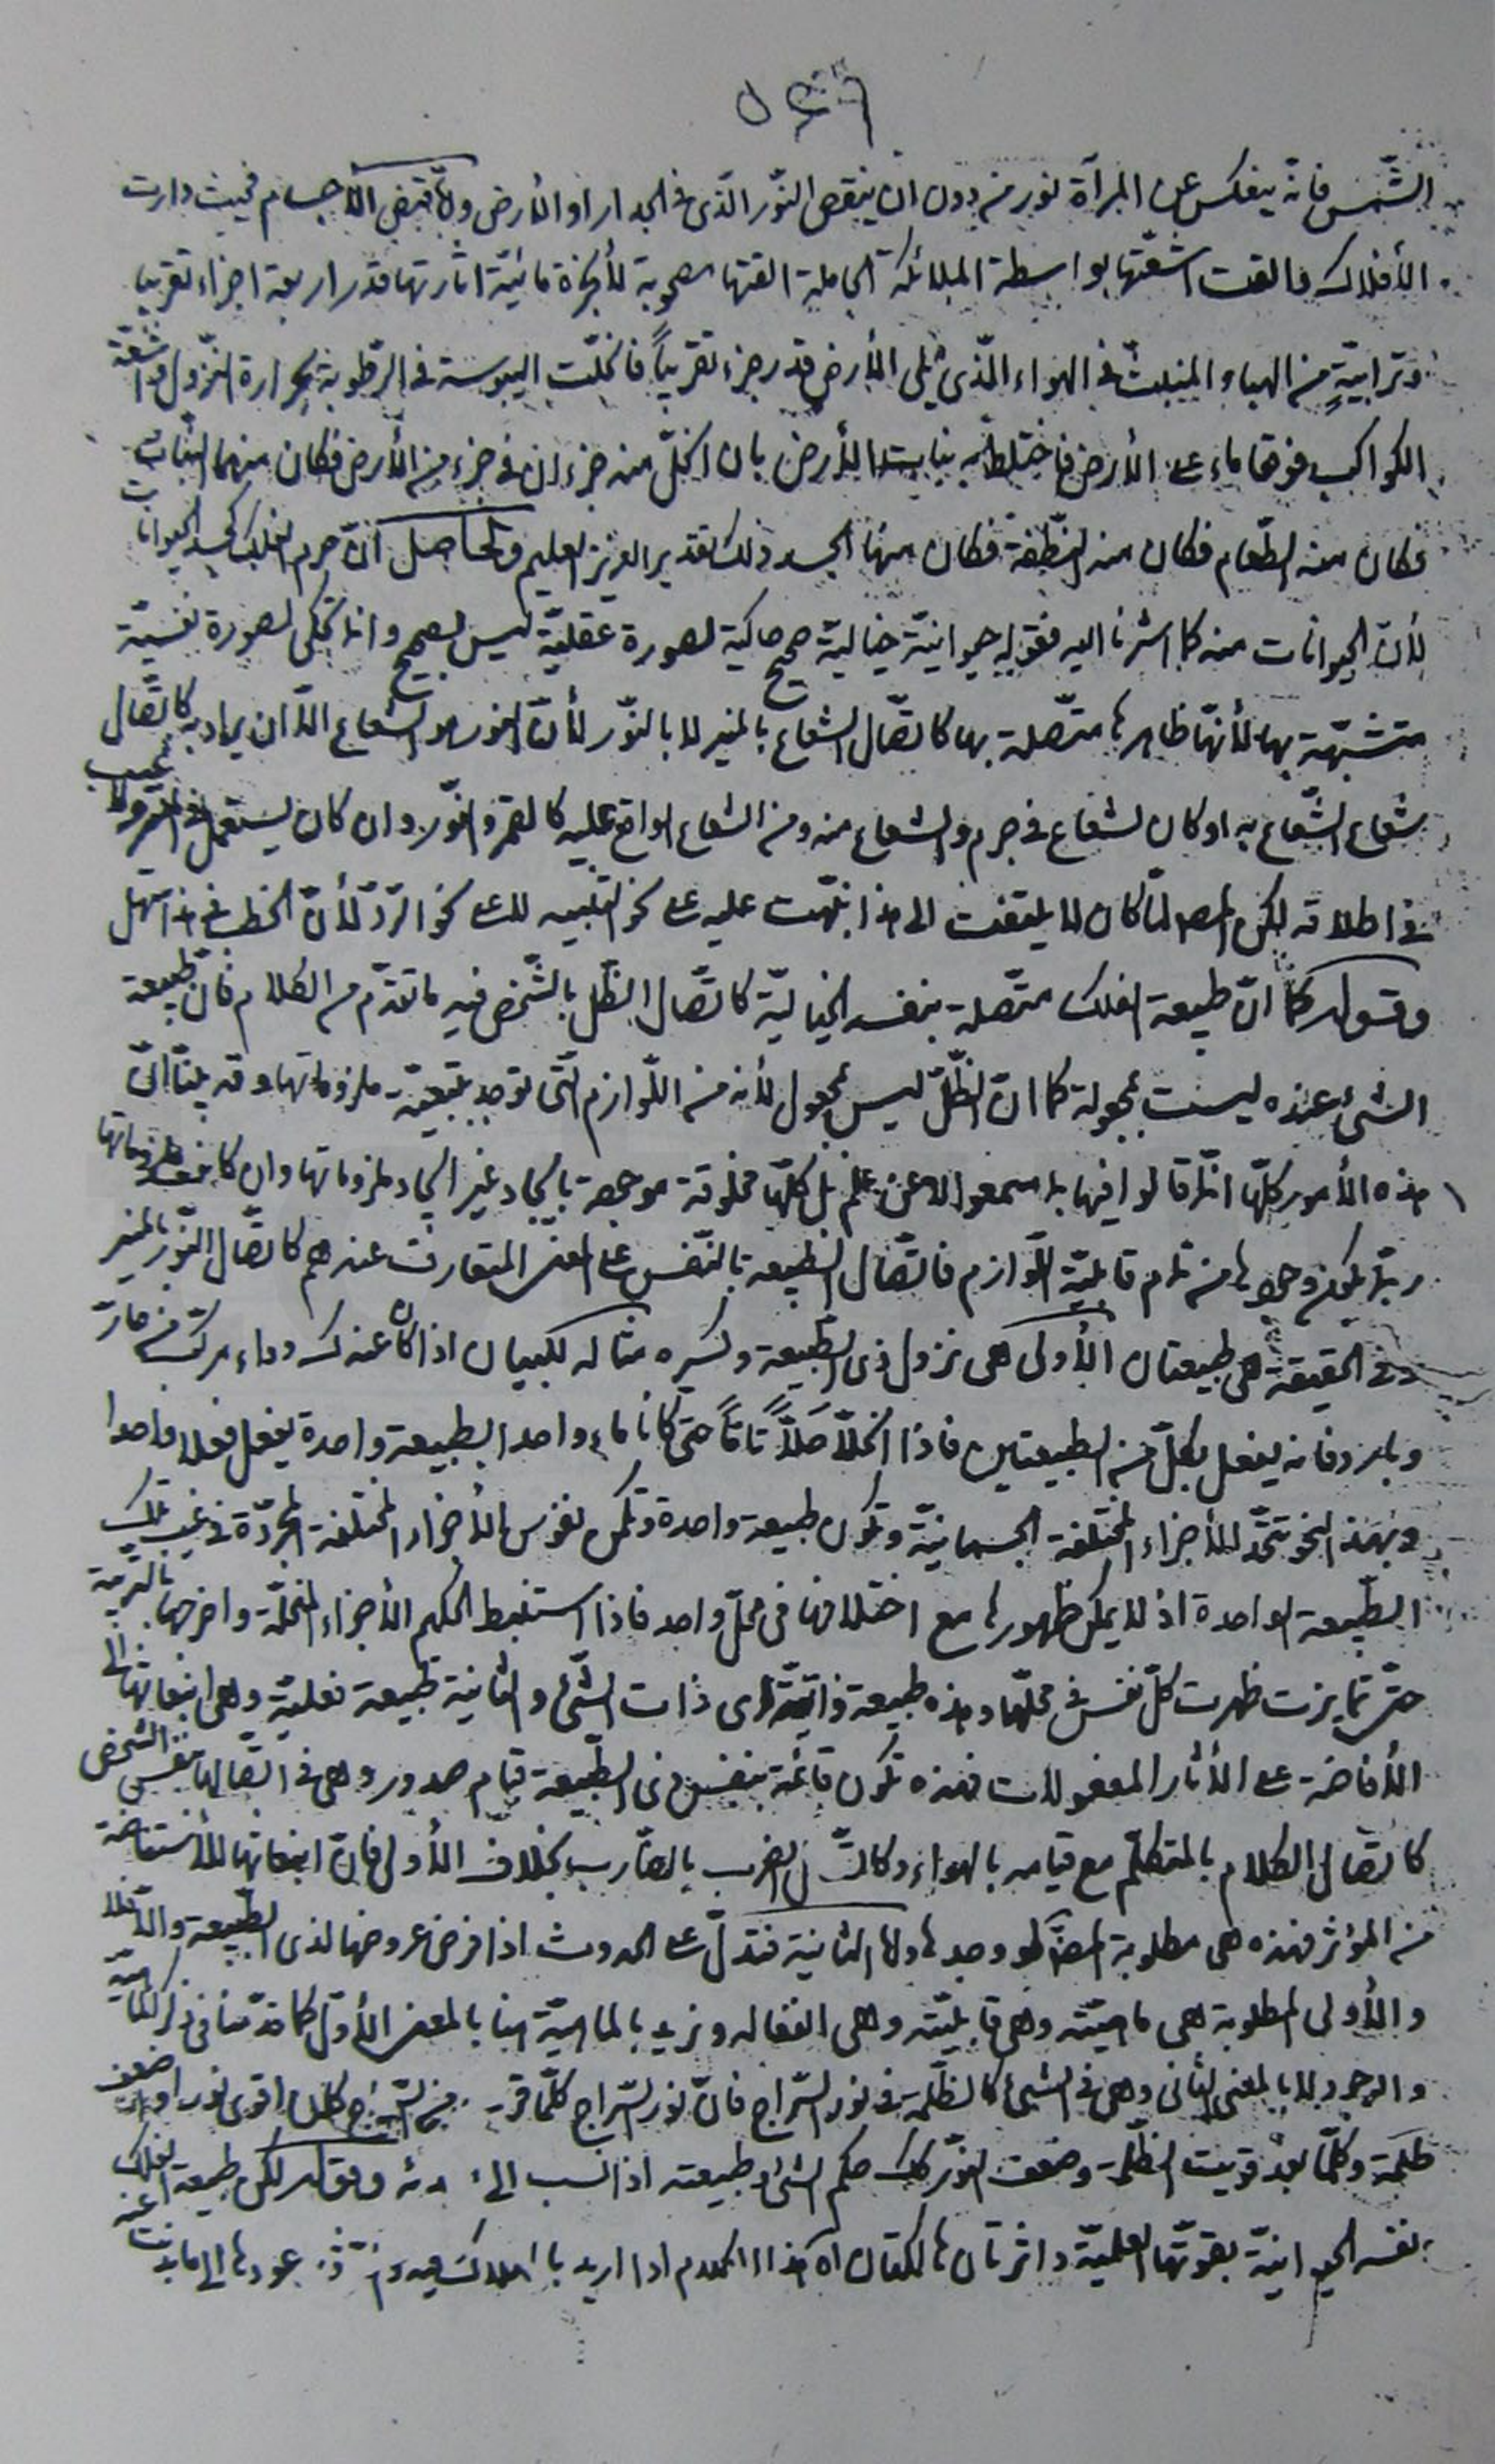 الشّمس فانه ينعكس عن المرآة نور من دون ان ينقص النّور الّذى فى الجدار او الأرض ولا تقتضى الأجسام فحيث دارت
الأفلاك فالقت اشعّتها بواسطة الملائكة الحاملة القتها مصحوبة لأبخرة مائيّة اثارتها قدر اربعة اجزاء تقريبا
وترابيّةٍ من الهباء المنبثّ فى الهواء الّذى يلى الأرض قدر جزء تقريباً فانحلّت اليبوسة فى الرّطوبة بحرارة النّزول واشعّة
الكواكب فوقها ماء على الأرض فاختلط به نبات الأرض بان انحلّ منه جزءان فى جزء من الأرض فكان منهما النّبات
فكان منه الطّعام فكان منه النّطفة فكان منها الجسد ذلك تقدير العزيز العليم والحاصل انّ جرم الفلك كجسد الحيوانات
لأنّ الحيوانات منه كما اشرنا اليه فقوله حيوانيّة خياليّة صحيح حاكية لصورة عقليّة ليس بصحيح وانما تحكى لصورة نفسيّة
متشبّهة بها لأنّها ظاهرها متّصلة بها كاتّصال الشعاع بالمنير لا بالنّور لأنّ النور هو الشعاع الّا ان يراد به كاتّصال
شعاع الشّعاع به او كان لشعاع فى جرم والشعاع منه ومن الشعاع الواقع عليه كالقمر والنّور وان كان يستعمل فى المنير ولا عيب
فى اطلاقه لكن المص لمّا كان لا يلتفت الى هذا نبّهت عليه على نحو التنبيه لا على نحو الرّدّ لأنّ الخطب فى هذا سهل
وقوله كما انّ طبيعة الفلك متّصلة بنفسه الخياليّة كاتّصال الظّل بالشّخص فيه ما تقدّم من الكلام فانّ طبيعة
الشىء عنده ليست بمجعولة كما انّ الظّلّ ليس بمجعول لأنه من اللّوازم الّتى توجد بتبعيّة ملزوماتها وقد بيّنّا انّ
هذه الأمور كلّها انّما قالوا فيها بما سمعوا لا عن علم بل كلّها مخلوقة موجودة بايجاد غير ايجاد ملزوماتها وان كانت ملزوماتها
ربّما يكون وجودها من تمام قابليّة اللّوازم فاتّصال الطبيعة بالنّفس على المعنى المتعارف عندهم كاتّصال النّور بالمنير
وفى الحقيقة هى طبيعتان الأولى هى نزول ذى الطّبيعة وتكسّره مثاله للبيان اذا كان عندك دواء مركّب من حارّ
وبارد فانه يفعل بكلّ من الطبيعتين فاذا انحلّا حَلّاً تامّاً حتى كانا ماء واحدا بطبيعة واحدة يفعل فعلا واحدا
وبهذا النحو تتّحد الأجزاء المختلفة الجسمانيّة وتكون طبيعة واحدة وتكمن نفوس الأجزاء المختلفة المجرّدة فى غيب تلك
الطّبيعة الواحدة اذ لا يمكن ظهورها مع اختلافها فى محلّ واحد فاذا استنبط الحكيم الأجزاء المنحلّة واخرجها بالتّربية
حتّى تمايزت ظهرت كلّ نفس فى محلّها وهذه طبيعة ذاتيّة اى ذات الشّىء والثانية طبيعة فعليّة وهى انبعاثها الى
الأفاضة على الأثار المفعولات فهذه تكون قائمة بنفس ذى الطّبيعة قيام صدور وهى فى اتّصالها بنفس الشخص
كاتّصال الكلام بالمتكلّم مع قيامه بالهواء وكاتّصال الضرب بالضّارب بخلاف الأولى فانّ انبعاثها للأستفاضة
من المؤثر فهذه هى مطلوبة المص لو وجدها واما الثانية فتدلّ على الحدوث اذا فرض عروضها لذى الطبيعة والّا فلا
والأولى المطلوبة هى ماهيّته وهى قابليّته وهى انفعاله ونريد بالماهيّة هنا بالمعنى الأوّل كما قدّمنا فى ذكر الماهيّة
والوجود لا بالمعنى الثانى وهى فى الشىء كالظّلمة فى نور السّراج فانّ نور السّراج كلّما قرب من السّراج كان اقوى نورا واضعف
ظلمة وكلّما بعد قويت الظّلمة وضعف النّور كذلك حكم الشىء وطبيعته اذا نسب الى وقوله لكن طبيعة الفلك
بنفسه الحيوانيّة بقوّتها العلميّة داثرتان هالكتان اه هذا الكلام اذا اريد عودها الى ما بدئت عنه